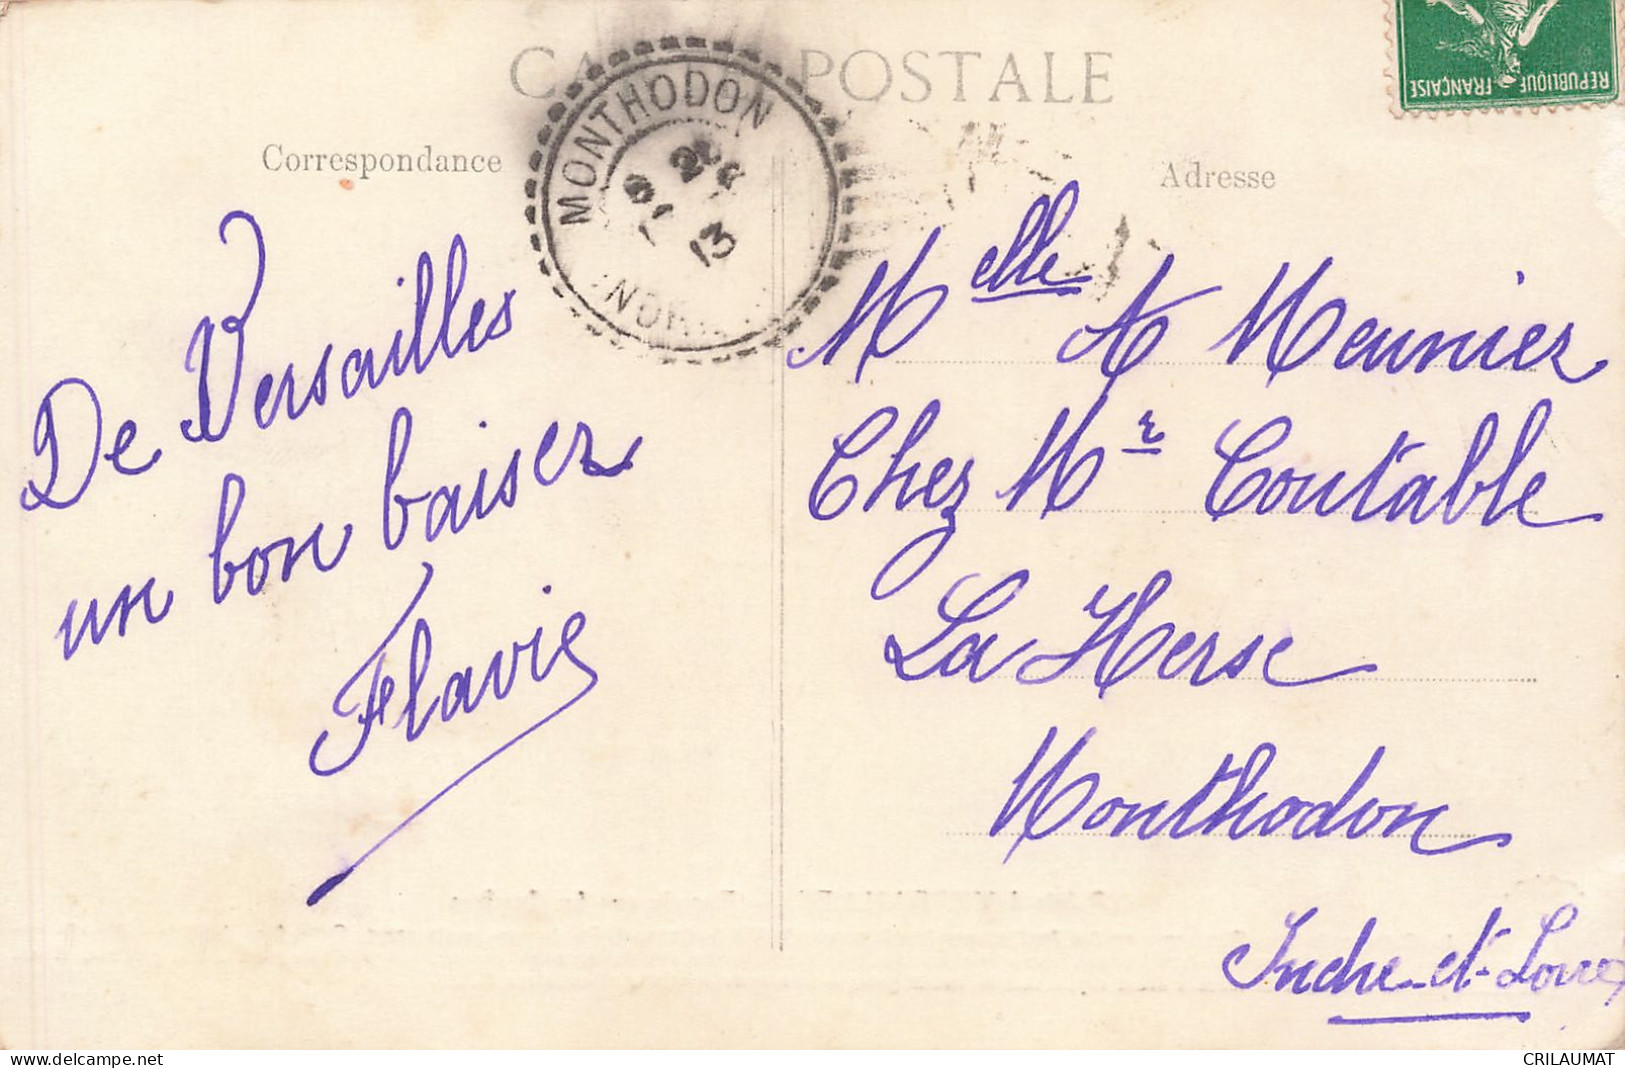 CARTE POSTALE
REPUBLIQUE FRANÇAISE
MONTHODON
13
Correspondance
Adresse
De Versailles
un bon baiser
Flavie
Melle A Meunier
Chez Mr Coutable
La Herse
Monthodon
Indre-et-Loire
delcampe.net
CRILAUMAT